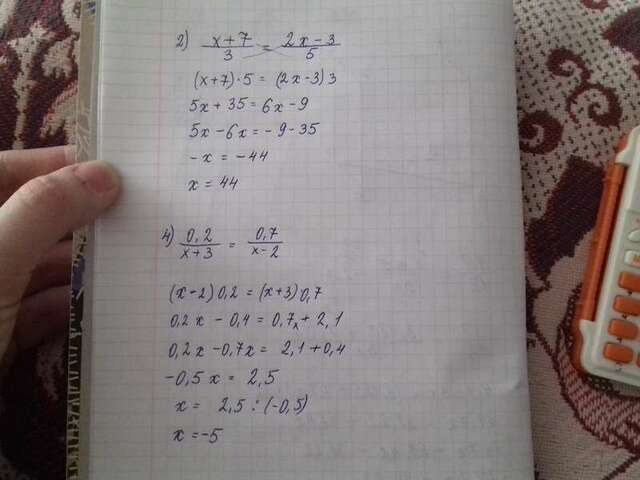 2) x+7/3 = 2x-3/5
(x+7)·5 = (2x-3)3
5x+35=6x-9
5x-6x=-9-35
-x = -44
x = 44
4) 0,2/x+3 = 0,7/x-2
(x-2)0,2 = (x+3)0,7
0,2x - 0,4 = 0,7x + 2,1
0,2x -0,7x = 2,1+0,4
-0,5x = 2,5
x = 2,5 : (-0,5)
x = -5